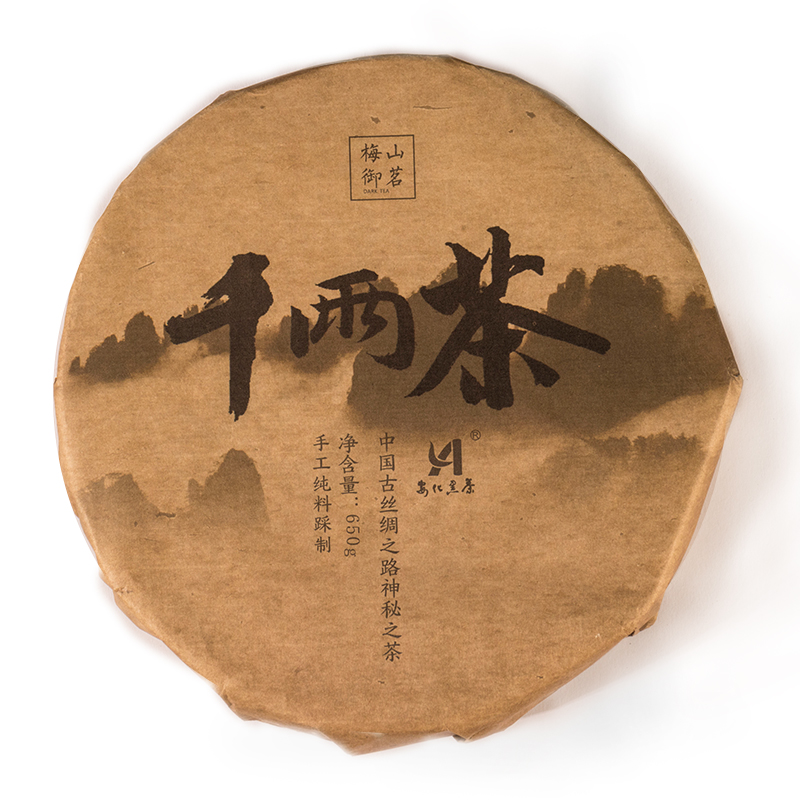 梅山
御茗
DARK TEA
千两茶
®
安化黑茶
中国古丝绸之路神秘之茶
净含量：650g
手工纯料踩制